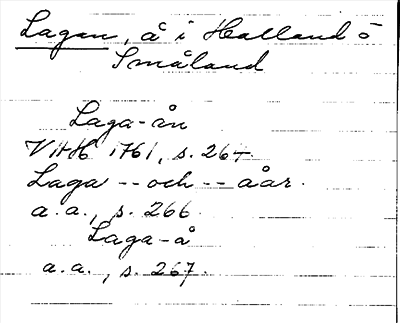 Lagan, å i Halland o
Småland
Laga-ån
VHH 1761, s. 264.
Laga -- och -- åar.
a. a., s. 266.
Laga-å
a. a., s. 267.